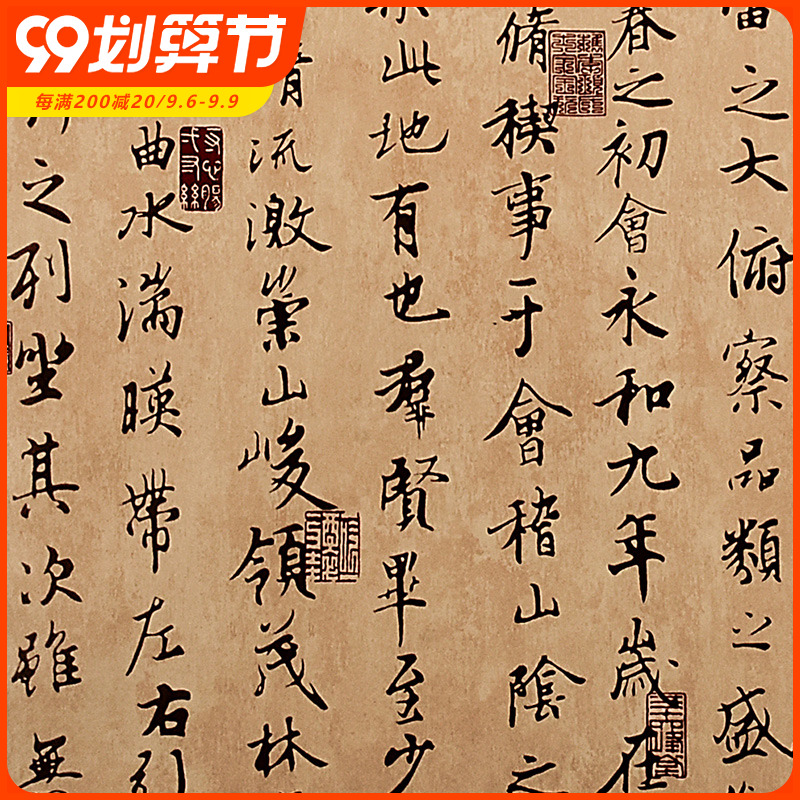 99划算节
每满200减20/9.6-9.9
之大俯察品類之盛
春之初會永和九年歲在
脩稧事于會稽山陰之
此地有也羣賢畢至少
清流激崇山峻領茂林
曲水湍暎帶左右引
之列坐其次雖無